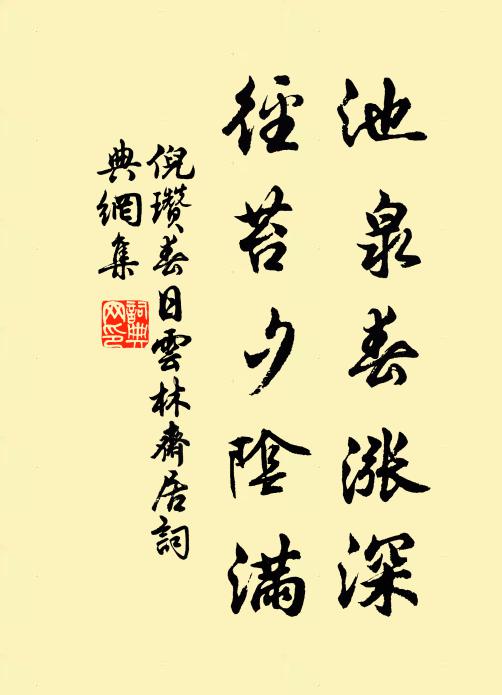 池泉春漲深
徑苔夕陰滿
倪瓚春日雲林齋居詞
典網集
詞典網印